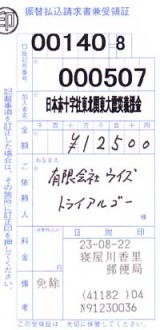 振替払込請求書兼受領証
口座記号番号
00140 8
000507
加入者名
日本赤十字社東北関東大震災義援金
金額
千 百 十 万 千 百 十 円
¥12500
ご依頼人
おなまえ
有限会社ウイズ
トライアルゴー
料金
日附印
23-08-22
寝屋川香里
郵便局
備考
免除
(41182) 04
N91230036
記載事項を訂正した場合は、その箇所に訂正印を押してください。
この受領証は、大切に保管してください。
印